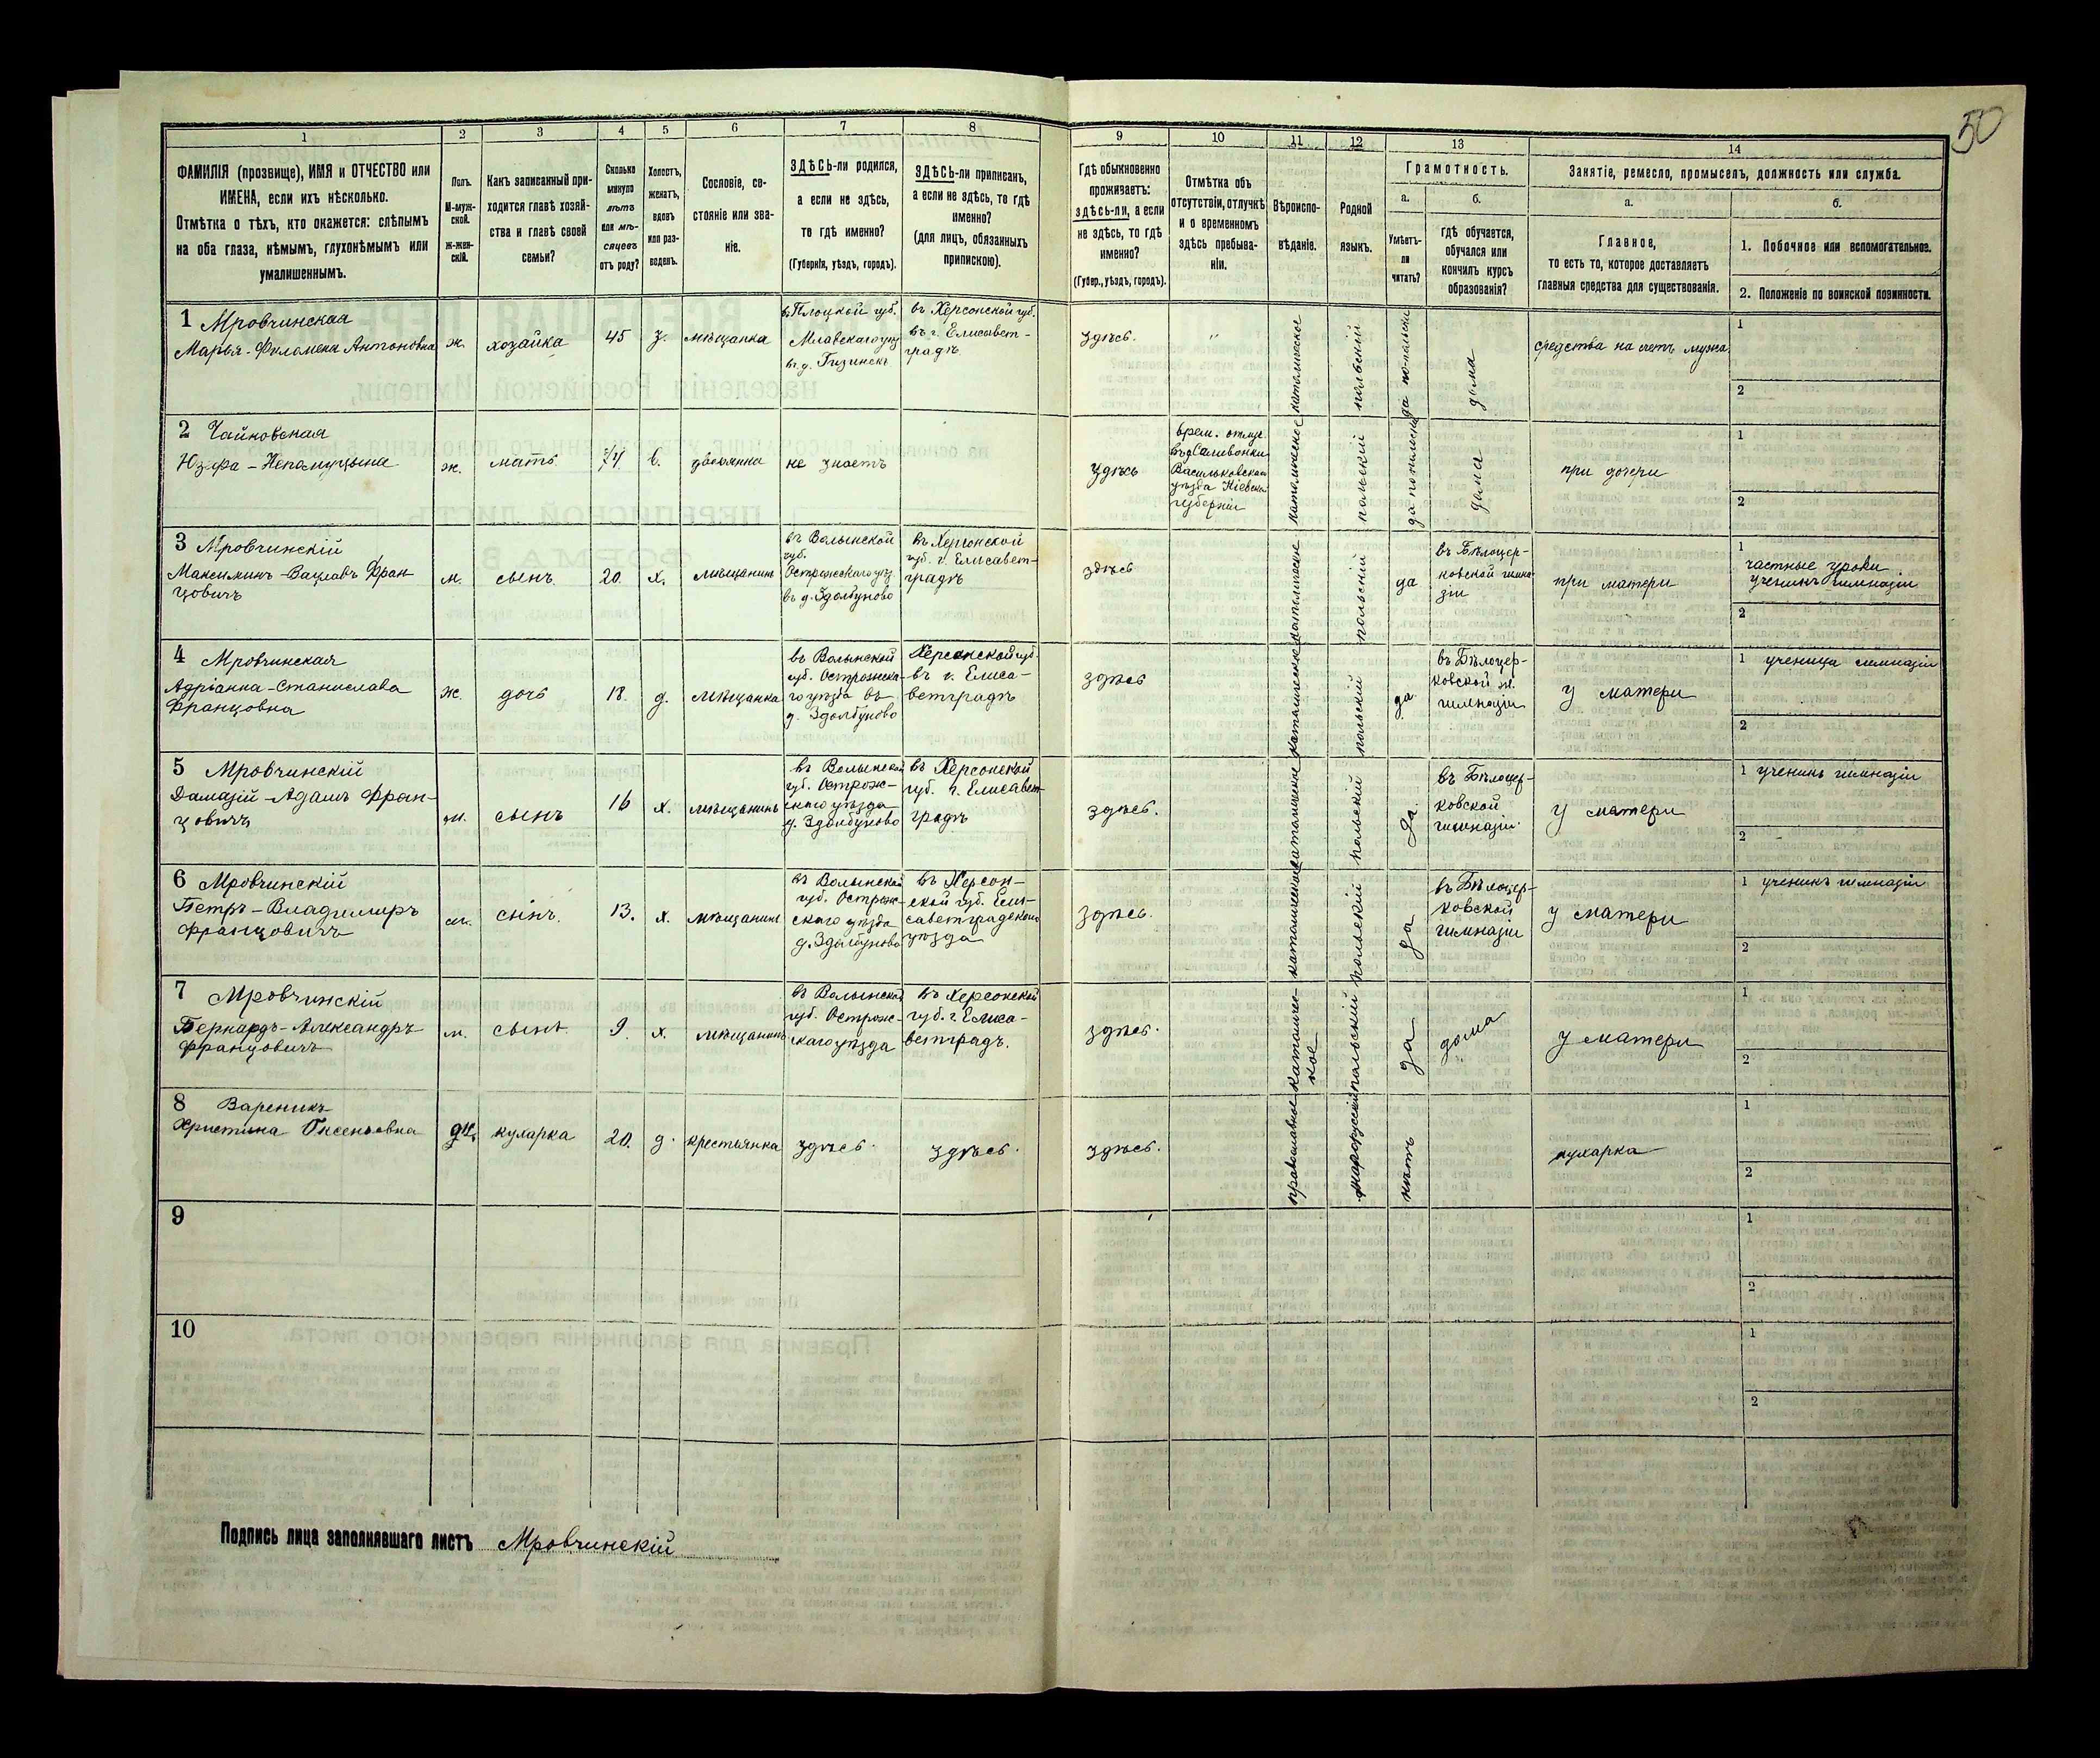 50
1
2
3
4
5
6
7
8
9
10
11
12
13
14
ФАМИЛІЯ (прозвище), ИМЯ и ОТЧЕСТВО или
ИМЕНА, если ихъ нѣсколько.
Отмѣтка о тѣхъ, кто окажется: слѣпымъ
на оба глаза, нѣмымъ, глухонѣмымъ или
умалишеннымъ.
Полъ.
М-муж-
ской.
ж-жен-
скій.
Какъ записанный при-
ходится главѣ хозяй-
ства и главѣ своей
семьи?
Сколько
минуло
лѣтъ
или мѣ-
сяцевъ
отъ роду?
Холостъ,
женатъ,
вдовъ
или раз-
веденъ.
Сословіе, со-
стояніе или зва-
ніе.
ЗДѢСЬ-ли родился,
а если не здѣсь,
то гдѣ именно?
(Губернія, уѣздъ, городъ).
ЗДѢСЬ-ли приписанъ,
а если не здѣсь, то гдѣ
именно?
(для лицъ, обязанныхъ
припискою).
Гдѣ обыкновенно
проживаетъ:
здѣсь-ли, а если
не здѣсь, то гдѣ
именно?
(Губер., уѣздъ, городъ).
Отмѣтка объ
отсутствіи, отлучкѣ
и о временномъ
здѣсь пребыва-
ніи.
Вѣроиспо-
вѣданіе.
Родной
языкъ.
Грамотность.
а.
Умѣетъ-
ли
читать?
б.
гдѣ обучается,
обучался или
кончилъ курсъ
образованія?
Занятіе, ремесло, промыселъ, должность или служба.
а.
Главное,
то есть то, которое доставляетъ
главныя средства для существованія.
б.
1. Побочное или вспомогательное.
2. Положеніе по воинской повинности.
1 Мровчинская
Марья-Филомена Антоновна
ж.
хозайка
45
з.
мѣщанка
въ Плоцкой губ.
Млавскаго уѣз
въ Херсонской губ.
въ г. Елисавет-
градѣ
здѣсь.
"
католическое
польскій
да по-польски
дома
средства на счетъ мужа
1
2
2 Чайковская
Юзефа-Непомуцына
ж.
мать
74
в.
дворянка
не знаетъ
здѣсь
врем. отлуч.
Васильковскаго
уѣзда Кіевской
губерніи
католическое
польскій
да по-польски
дома
при дочери
1
2
3 Мровчинскій
Максимин-Вацлавъ Фран
цовичъ
м.
сынъ.
20.
х.
мѣщанинъ
въ Волынской
губ.
Острожскаго уѣз
въ д. Здолбуново
въ Херсонской
губ. г. Елисавет-
градъ
здѣсь
католическое
польскій
да
въ Бѣлоцер-
ковской гимна
зіи
при матери
1
частные уроки
ученикъ гимназіи
2
4 Мровчинская
Адріанна-Станислава
Францовна
ж.
дочь
18.
д.
мѣщанка
въ Волынской
губ. Острожска-
го уѣзда въ
д. Здолбуново
Херсонской губ.
въ г. Елиса-
ветградѣ
здѣсь
католическое
польскій
да
въ Бѣлоцер-
ковской ж.
гимназіи
у матери
1 ученица гимназіи
2
5 Мровчинскій
Дамазій-Адамъ Фран-
цовичъ
м.
сынъ
16
х.
мѣщанинъ
въ Волынской
губ. Острож-
скаго уѣзда
д. Здолбуново
въ Херсонской
губ. г. Елисавет-
градъ
здѣсь.
католическое
польскій
да
въ Бѣлоцер-
ковской
гимназіи
у матери
1 ученикъ гимназіи
2
6 Мровчинскій
Петръ-Владимиръ
Францовичъ
м.
сынъ.
13.
х.
мѣщанинъ
въ Волынской
губ. Острож-
скаго уѣзда
д. Здолбуново
въ Херсон-
ской губ. Ели-
саветградскаго
уѣзда
здѣсь.
католическое
польскій
да
въ Бѣлоцер-
ковской
гимназіи
у матери
1 ученикъ гимназіи
2
7 Мровчинскій
Бернардъ-Александръ
Францовичъ
м.
сынъ.
9.
х.
мѣщанинъ
въ Волынской
губ. Острож-
скаго уѣзда
въ Херсонской
губ. г. Елиса-
ветградъ.
здѣсь.
католиче-
кое
польскій
да
дома
у матери
1
2
8 Вареникъ
Христина Оксеньевна
кухарка
20.
д.
крестьянка
здѣсь.
здѣсь.
здѣсь.
православное
малорусскій
нѣтъ
кухарка
1
2
9
1
2
10
1
2
Подпись лица заполнявшаго листъ Мровчинскій